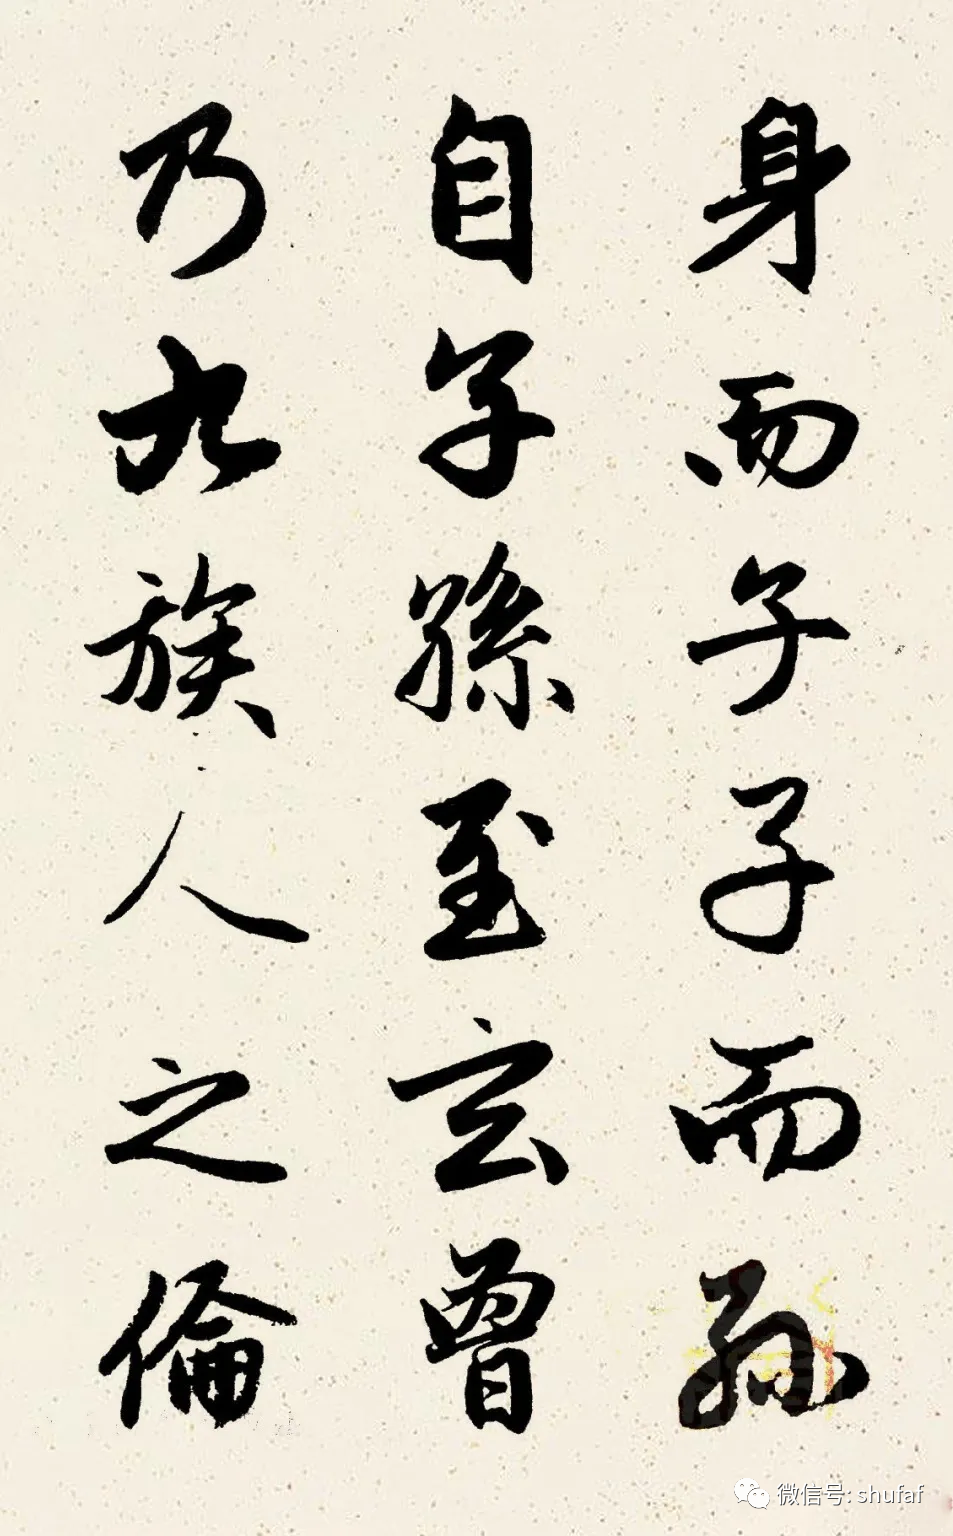 身而子子而孫
自子孫至玄曾
乃九族人之倫
微信号: shufaf